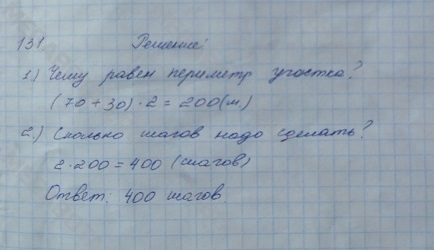 131 Решение:
1) Чему равен периметр участка?
(70 + 30) · 2 = 200 (м)
2) Сколько шагов надо сделать?
2 · 200 = 400 (шагов)
Ответ: 400 шагов